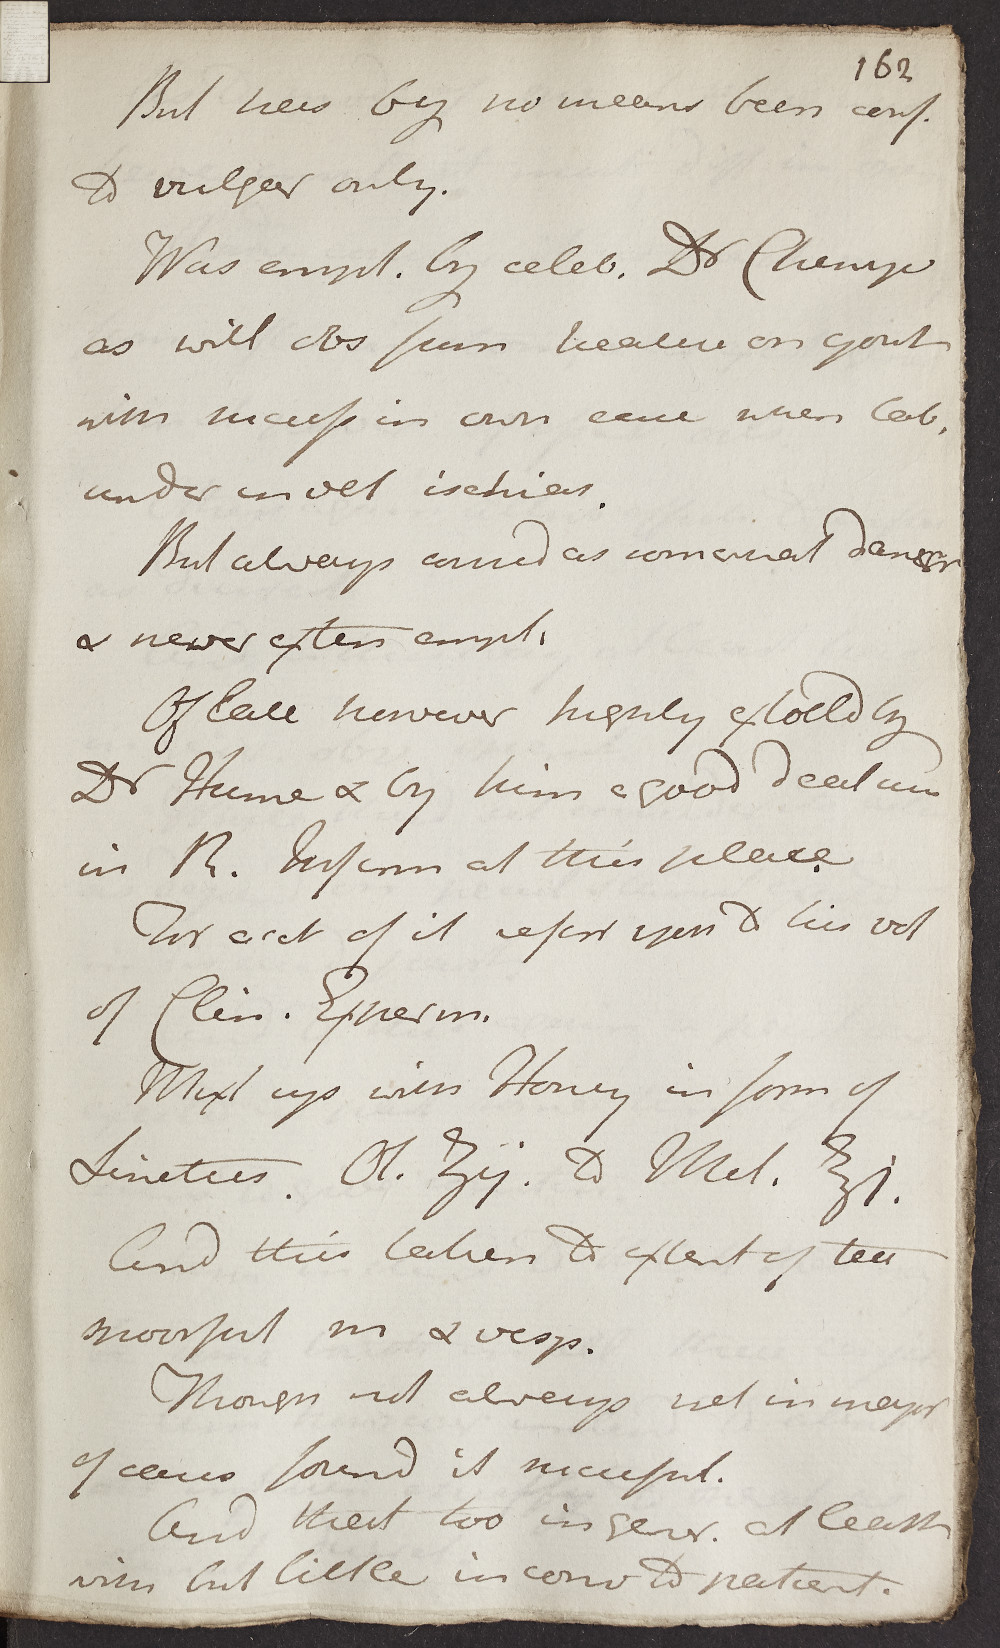 162
But has by no means been conf.
to vulgar only.
Was empl. by celeb. Dr Cheyne
as will obs from treatise on gout
with success in own case when lab.
under viol ischias.
But always consid as somewhat danger
& never extens empl.
Of late however highly extolld by
Dr Hume & by him a good deal used
in R. Infirm at this place.
For acct of it refer you to his vol
of Clin. Experm.
Mixt up with Honey in form of
Linctus. Ol. ʒij. to Mel. ℥j.
And this taken to extent of tea
spoonful m & vesp.
Though not always yet in major
of cases found it successful.
And that too in gener. at least
with but little inconv to patient.